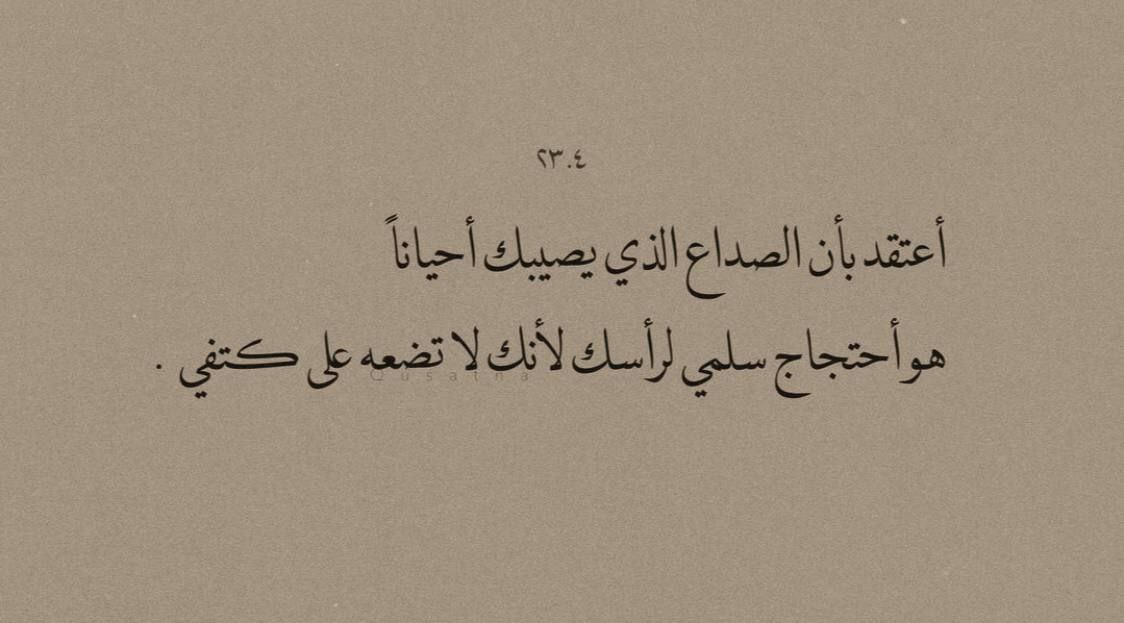 ٢٣.٤
أعتقد بأن الصداع الذي يصيبك أحياناً
هو أحتجاج سلمي لرأسك لأنك لا تضعه على كتفي .
Qusatna